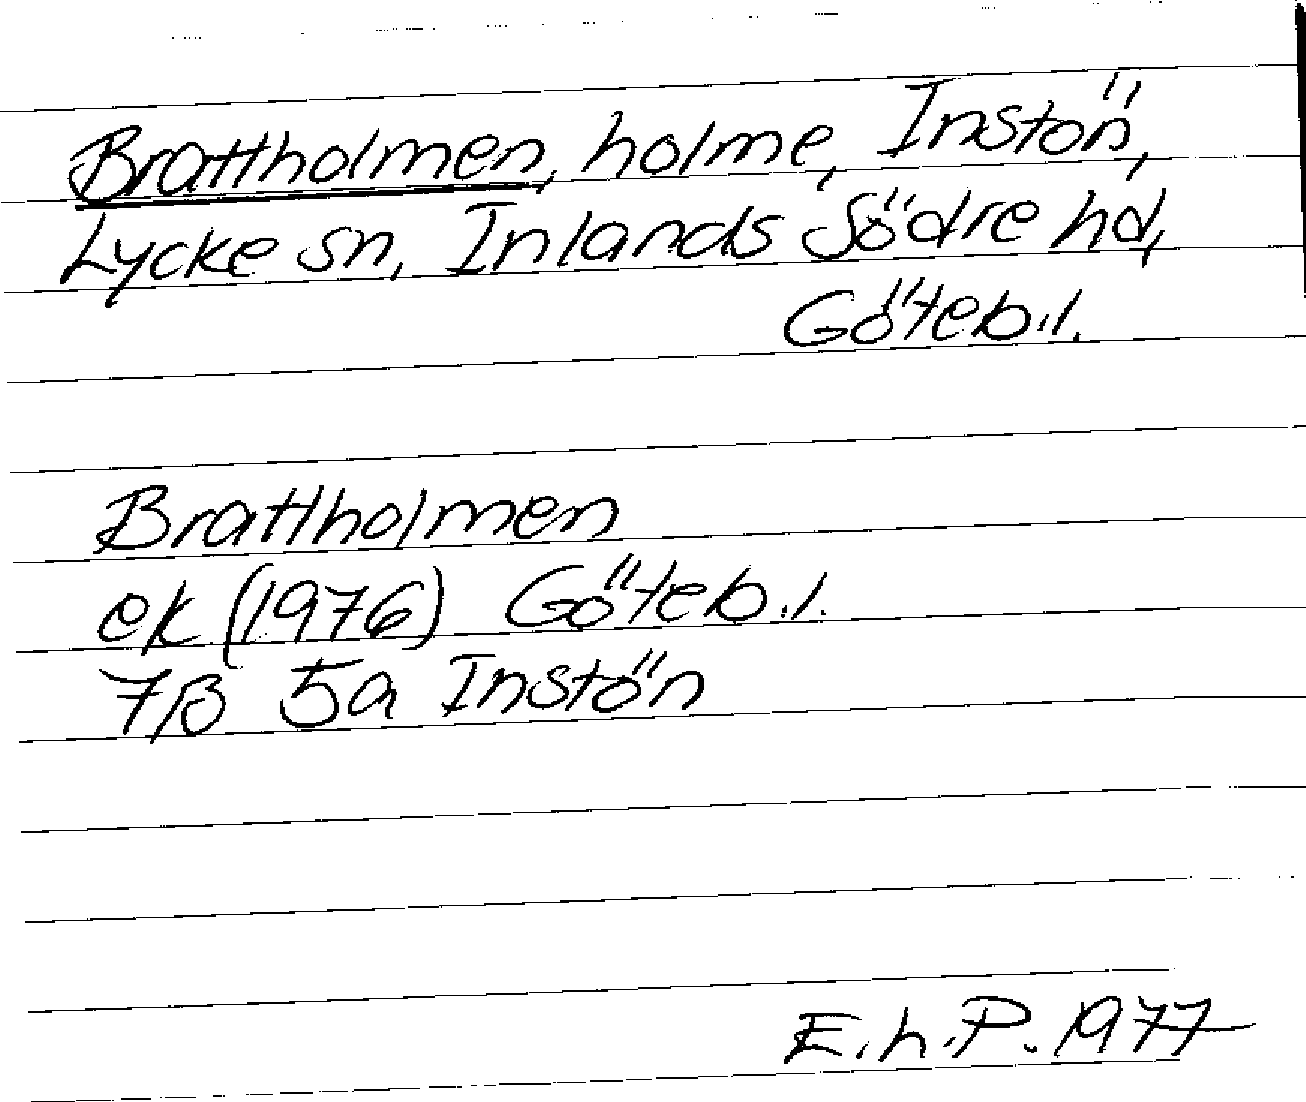 Brattholmen, holme, Instön,
Lycke sn, Inlands Södre hd,
Göteb.l.
Brattholmen
ek (1976) Göteb.l.
7B 5a Instön
E.h.P. 1977